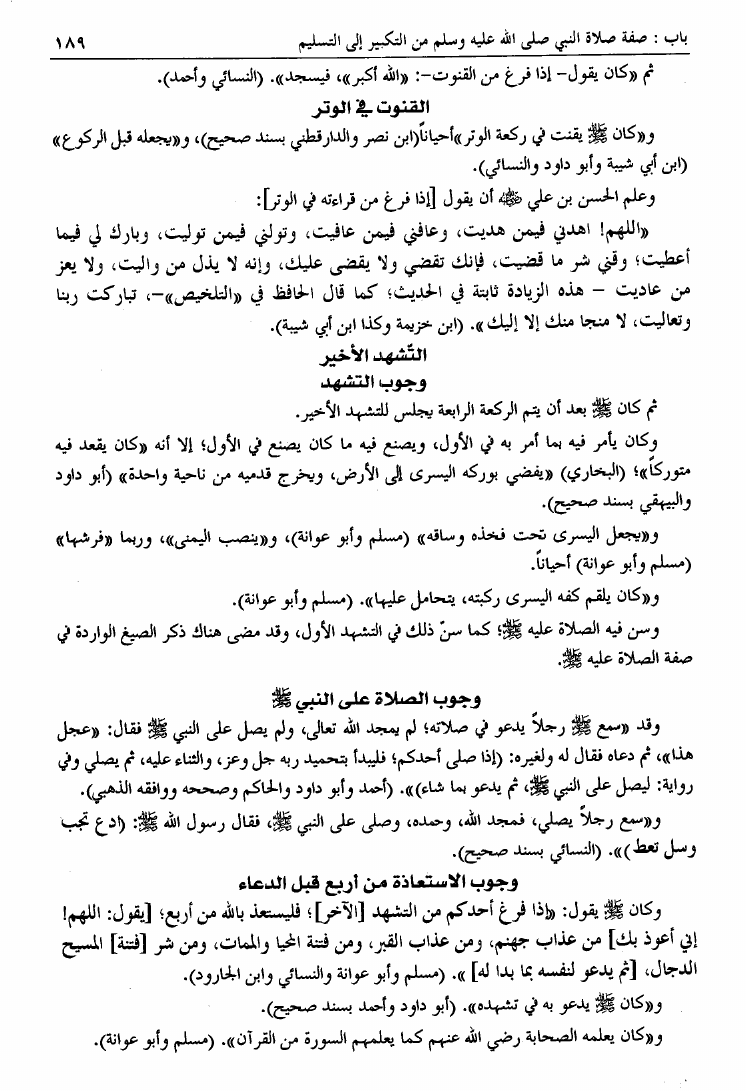 باب : صفة صلاة النبي صلى الله عليه وسلم من التكبير إلى التسليم ١٨٩
ثم «كان يقول– إذا فرغ من القنوت–: «الله أكبر»، فيسجد». (النسائي وأحمد).
القنوت في الوتر
و«كان ﷺ يقنت في ركعة الوتر»أحياناً(ابن نصر والدارقطني بسند صحيح)، و«يجعله قبل الركوع»
(ابن أبي شيبة وأبو داود والنسائي).
وعلم الحسن بن علي ﷺ أن يقول [إذا فرغ من قراءته في الوتر]:
«اللهم! اهدني فيمن هديت، وعافني فيمن عافيت، وتولني فيمن توليت، وبارك لي فيما
أعطيت؛ وقني شر ما قضيت، فإنك تقضي ولا يقضى عليك، وإنه لا يذل من واليت، ولا يعز
من عاديت – هذه الزيادة ثابتة في الحديث؛ كما قال الحافظ في «التلخيص»–، تباركت ربنا
وتعاليت، لا منجا منك إلا إليك». (ابن خزيمة وكذا ابن أبي شيبة).
التّشهد الأخير
وجوب التشهد
ثم كان ﷺ بعد أن يتم الركعة الرابعة يجلس للتشهد الأخير.
وكان يأمر فيه بما أمر به في الأول، ويصنع فيه ما كان يصنع في الأول؛ إلا أنه «كان يقعد فيه
متوركاً»؛ (البخاري) «يفضي بوركه اليسرى إلى الأرض، ويخرج قدميه من ناحية واحدة» (أبو داود
والبيهقي بسند صحيح).
و«يجعل اليسرى تحت فخذه وساقه» (مسلم وأبو عوانة)، و«ينصب اليمنى»، وربما «فرشها»
(مسلم وأبو عوانة) أحياناً.
و«كان يلقم كفه اليسرى ركبته، يتحامل عليها». (مسلم وأبو عوانة).
وسن فيه الصلاة عليه ﷺ؛ كما سنّ ذلك في التشهد الأول، وقد مضى هناك ذكر الصيغ الواردة في
صفة الصلاة عليه ﷺ.
وجوب الصلاة على النبي ﷺ
وقد «سمع ﷺ رجلاً يدعو في صلاته؛ لم يمجد الله تعالى، ولم يصل على النبي ﷺ فقال: «عجل
هذا»، ثم دعاه فقال له ولغيره: (إذا صلى أحدكم؛ فليبدأ بتحميد ربه جل وعز، والثناء عليه، ثم يصلي وفي
رواية: ليصل على النبي ﷺ، ثم يدعو بما شاء)». (أحمد وأبو داود والحاكم وصححه ووافقه الذهبي).
و«سمع رجلاً يصلي، فمجد الله، وحمده، وصلى على النبي ﷺ، فقال رسول الله ﷺ: (ادع تجب
وسل تعط)». (النسائي بسند صحيح).
وجوب الاستعاذة من أربع قبل الدعاء
وكان ﷺ يقول: «إذا فرغ أحدكم من التشهد [الآخر]؛ فليستعذ بالله من أربع؛ [يقول: اللهم!
إني أعوذ بك] من عذاب جهنم، ومن عذاب القبر، ومن فتنة المحيا والممات، ومن شر [فتنة] المسيح
الدجال، [ثم يدعو لنفسه بما بدا له] ». (مسلم وأبو عوانة والنسائي وابن الجارود).
و«كان ﷺ يدعو به في تشهده». (أبو داود وأحمد بسند صحيح).
و«كان يعلمه الصحابة رضي الله عنهم كما يعلمهم السورة من القرآن». (مسلم وأبو عوانة).